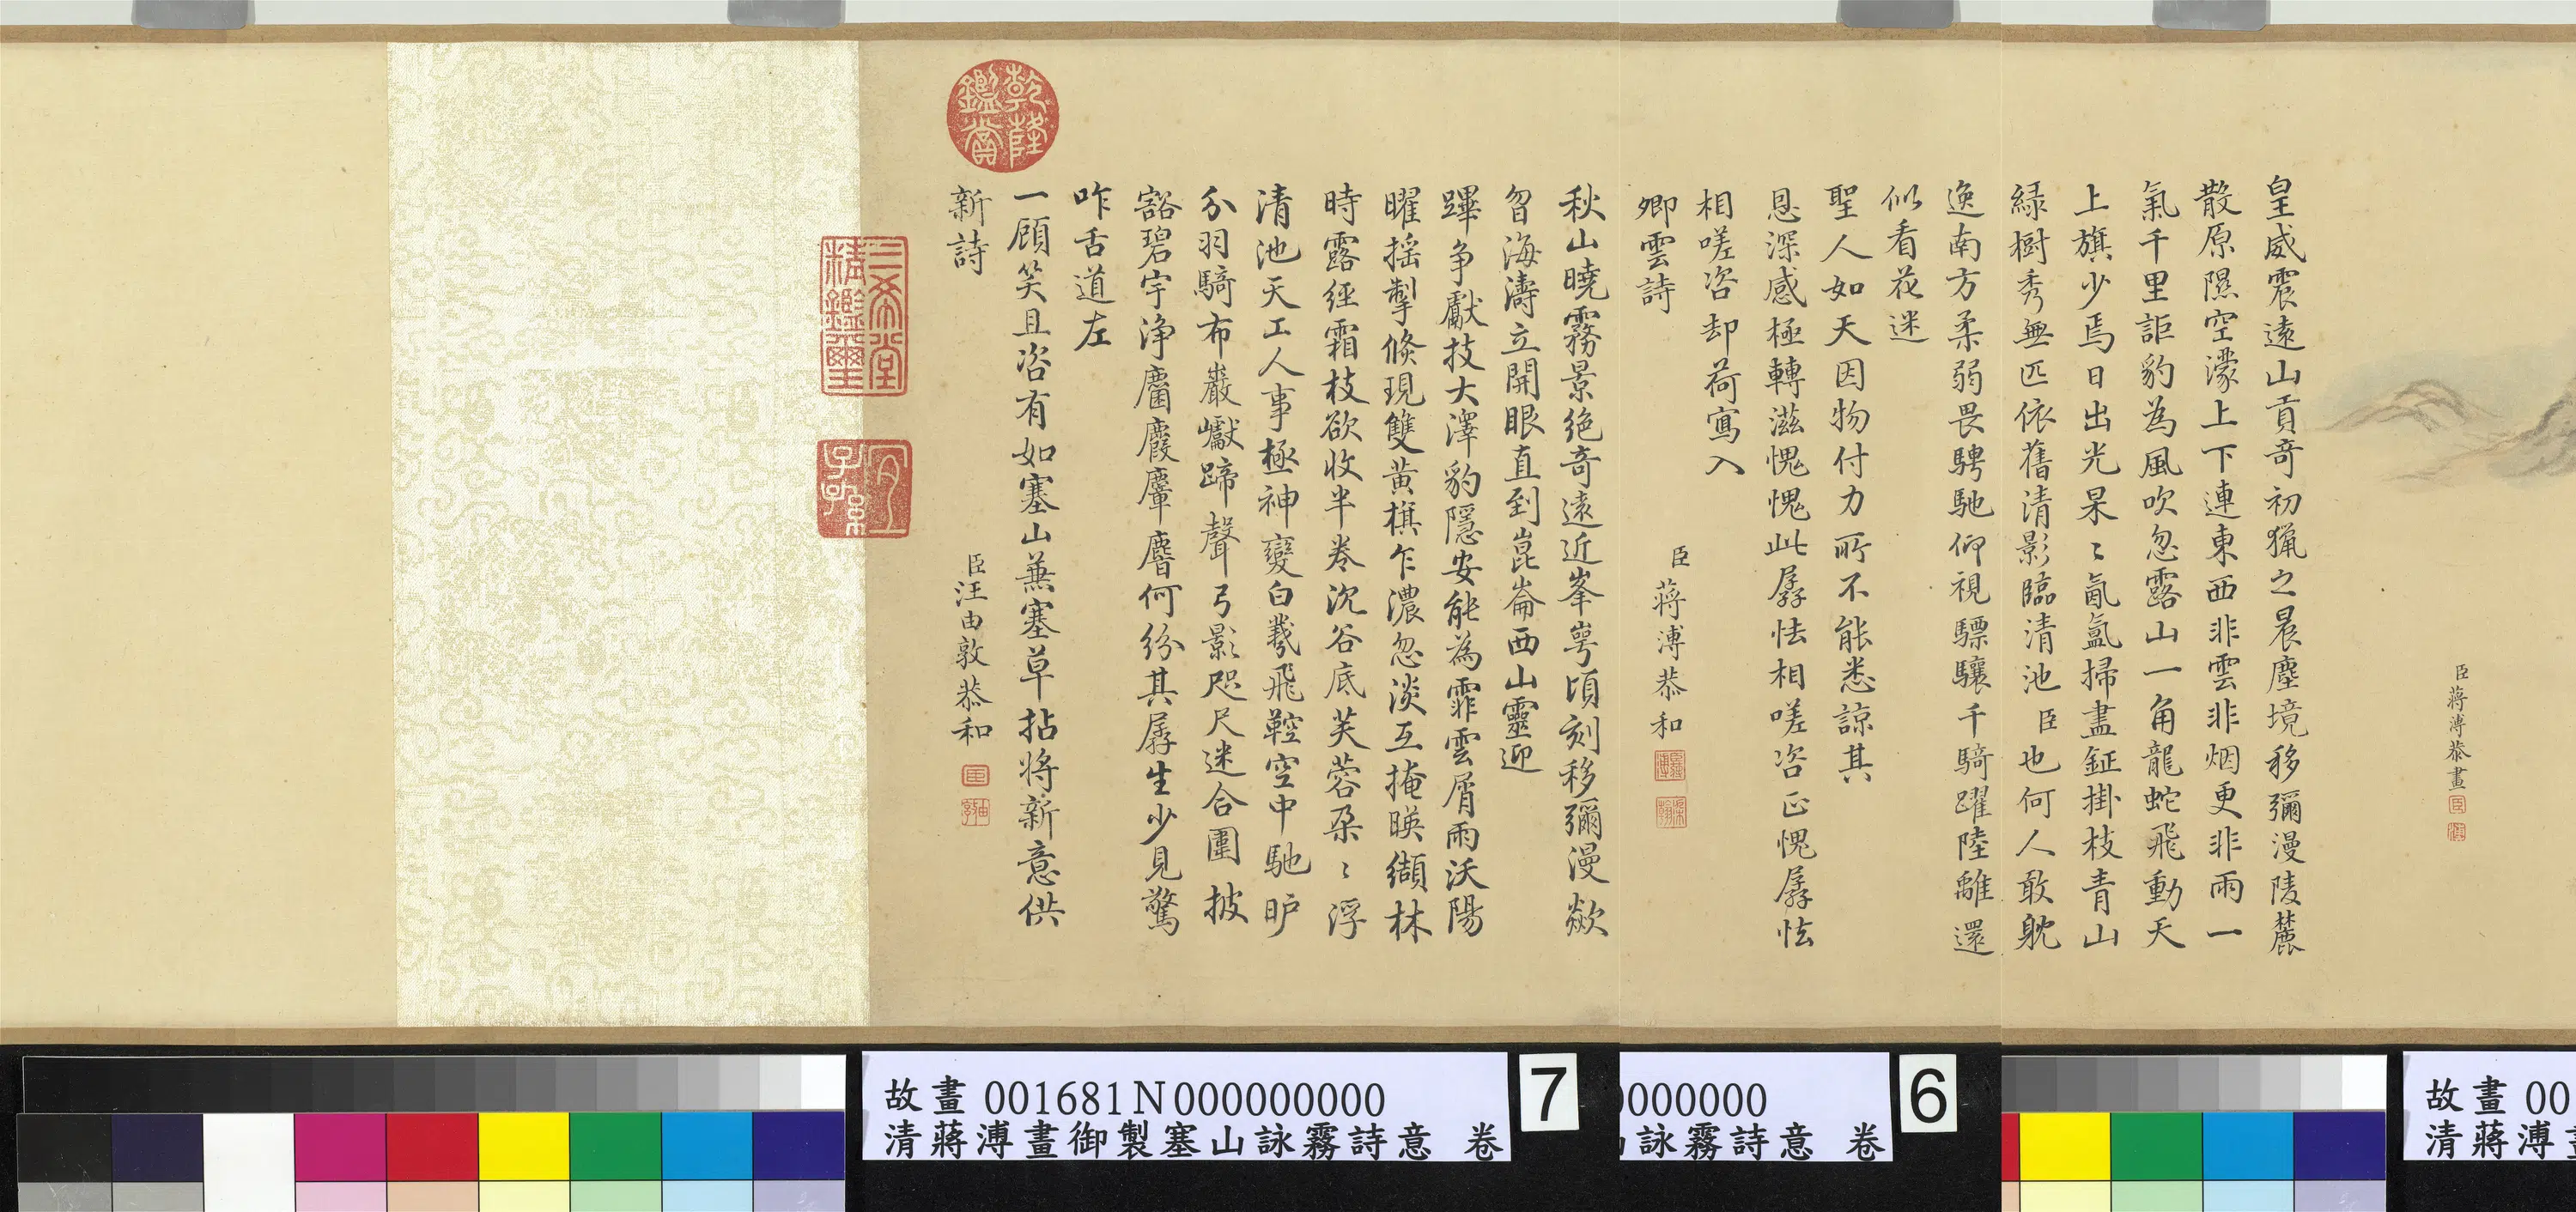 臣蔣溥恭畫
皇威震遠山貢奇初獵之晨塵境移彌漫陵麓
散原隰空濛上下連東西非雲非烟更非雨一
氣千里詎豹為風吹忽露山一角龍蛇飛動天
上旗少焉日出光杲〻氤氳掃盡鉦掛枝青山
綠樹秀無匹依舊清影臨清池臣也何人敢躭
逸南方柔弱畏騁馳仰視驃驤千騎躍陸離還
似看花迷
聖人如天因物付力所不能悉諒其
恩深感極轉滋愧愧此孱怯相嗟咨正愧孱怯
相嗟咨却荷寫入
卿雲詩
臣蔣溥恭和
秋山曉霧景絕奇遠近峯岑頃刻移彌漫歘
曶海濤立開眼直到崑崙西山靈迎
蹕爭獻技大澤豹隱安能為霏雲屑雨沃陽
曜搖掣倏現雙黃旗乍濃忽淡互掩暎纈林
時露經霜枝欲收半卷沉谷底芙蓉朶〻浮
清池天工人事極神變白羲飛鞚空中馳旷
分羽騎布巖巘蹄聲弓影咫尺迷合圍披
豁碧宇淨麕麚麞麏何紛其孱生少見驚
咋舌道左
一顧笑且咨有如塞山兼塞草拈將新意供
新詩
臣汪由敦恭和
乾隆鑑賞
三希堂精鑑璽
宜子孫
故畫001681N000000000
清蔣溥畫御製塞山詠霧詩意 卷
7
0000000
詠霧詩意 卷
6
故畫00
清蔣溥